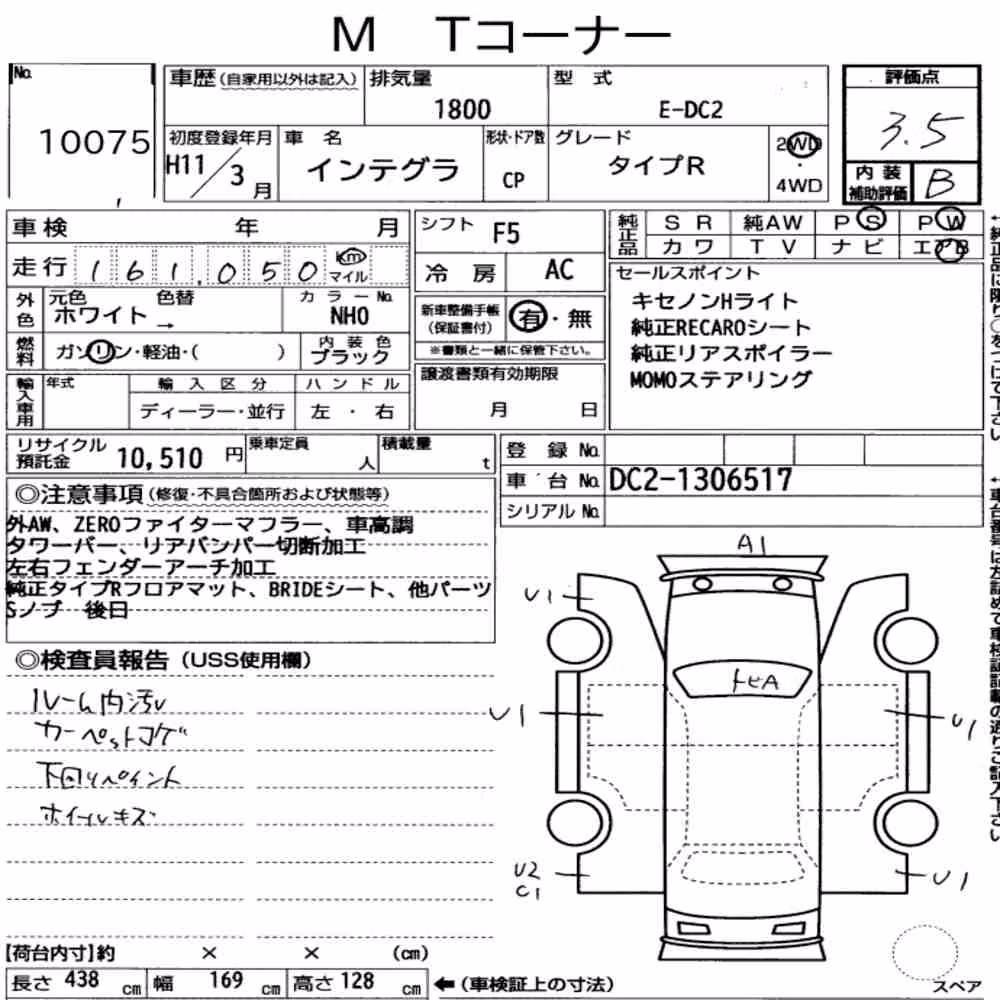 M Tコーナー
No. 10075
車歴(自家用以外は記入) 排気量 1800 型式 E-DC2
初度登録年月 H11/3月 車名 インテグラ 形状・ドア数 CP グレード タイプR 2WD・4WD
評価点 3.5
内装補助評価 B
車検 年 月
走行 161,050 km マイル
外色 元色 ホワイト 色替 → カラーNo. NHO
燃料 ガソリン・軽油・( ) 内装色 ブラック
輸入車用 年式 輸入区分 ディーラー・並行 ハンドル 左・右
シフト F5
冷房 AC
新車整備手帳(保証書付) 有・無
※書類と一緒に保管下さい。
譲渡書類有効期限
月 日
純正品 SR 純AW PS PW
カワ TV ナビ エアB
セールスポイント
キセノンHライト
純正RECAROシート
純正リアスポイラー
MOMOステアリング
リサイクル預託金 10,510円 乗車定員 人 積載量 t
登録No.
車台No. DC2-1306517
シリアルNo.
◎注意事項(修復・不具合箇所および状態等)
外AW、ZEROファイターマフラー、車高調
タワーバー、リアバンパー切断加工
左右フェンダーアーチ加工
純正タイプRフロアマット、BRIDEシート、他パーツ
Sノブ 後日
◎検査員報告(USS使用欄)
ルーム内汚レ
カーペットコゲ
下回りペイント
ホイールキズ
A1
U1
トビA
U1
U1
U2
C1
U1
スペア
【荷台内寸】約 × × (cm)
長さ 438 cm 幅 169 cm 高さ 128 cm ←(車検証上の寸法)